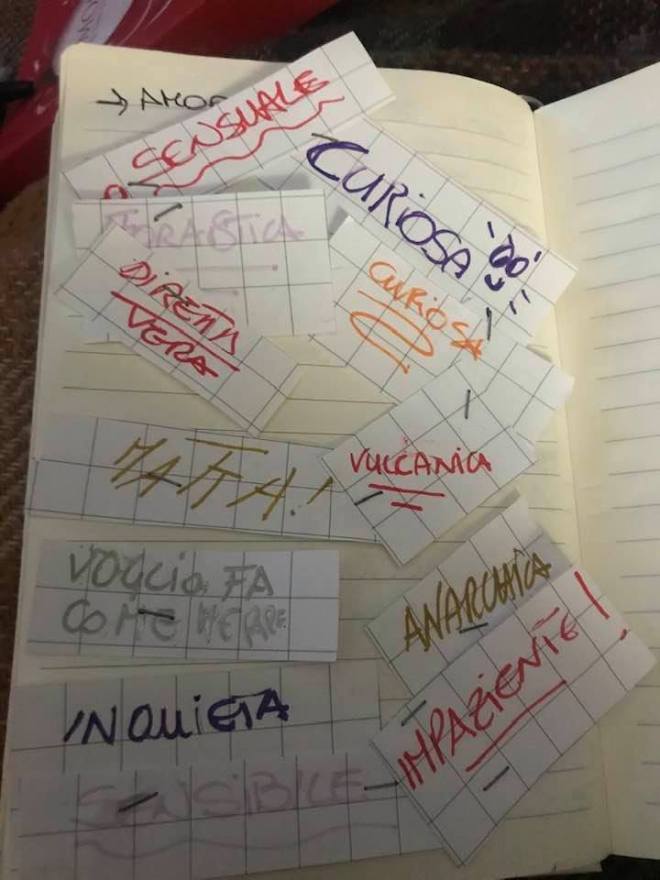 → AMOR
SENSUALE
CURIOSA
DIRETTA
VERA
CURIOSA
MATTA!
VULCANICA
VOGLIO FA
COME
ANARCHICA
IMPAZIENTE!
INQUIETA
SENSIBILE